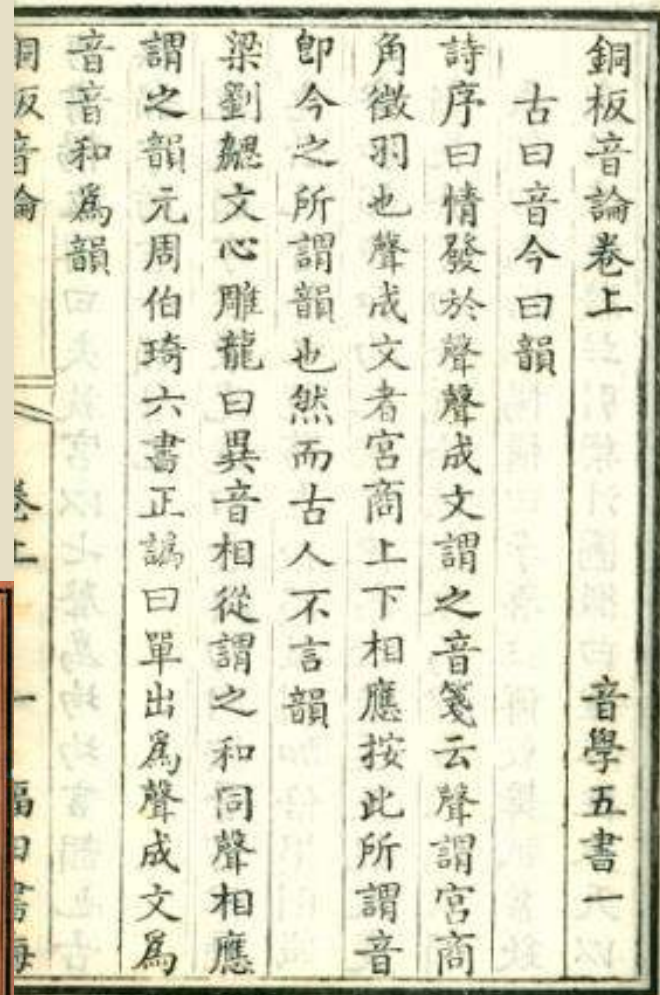 銅板音論卷上 音學五書一
古曰音今曰韻
詩序曰情發於聲聲成文謂之音箋云聲謂宮商
角徵羽也聲成文者宮商上下相應按此所謂音
即今之所謂韻也然而古人不言韻
梁劉勰文心雕龍曰異音相從謂之和同聲相應
謂之韻元周伯琦六書正譌曰單出爲聲成文爲
音音和爲韻
銅板音論 卷上 一 福田書海